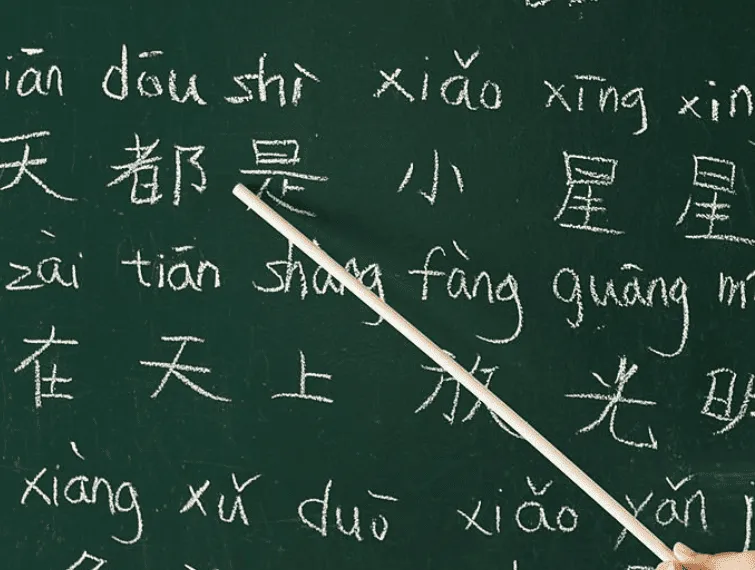 iān dōu shì xiǎo xīng xīn
天 都 是 小 星 星
zài tiān shàng fàng guāng m
在 天 上 放 光 明
xiàng xǔ duō xiǎo yǎn